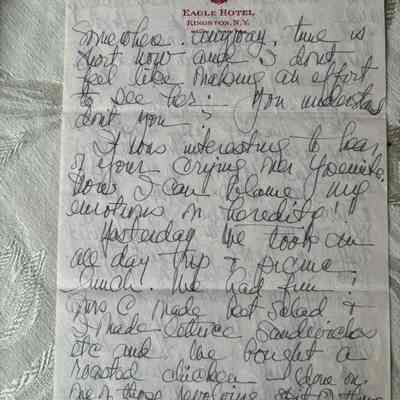 EAGLE HOTEL
KINGSTON, N.Y.
Somewhere. Anyway, time is
short now and I don't
feel like making an effort
to see her. You understand
don't you?
It was interesting to hear
of your crying over Yosemite.
Now I can blame my
emotions on heredity!!
Yesterday we took an
all day trip & picnic
lunch. We had fun!
Mrs C made pot. salad &
I made lettuce sandwiches
etc and we bought a
roasted chicken - done on
one of those revolving